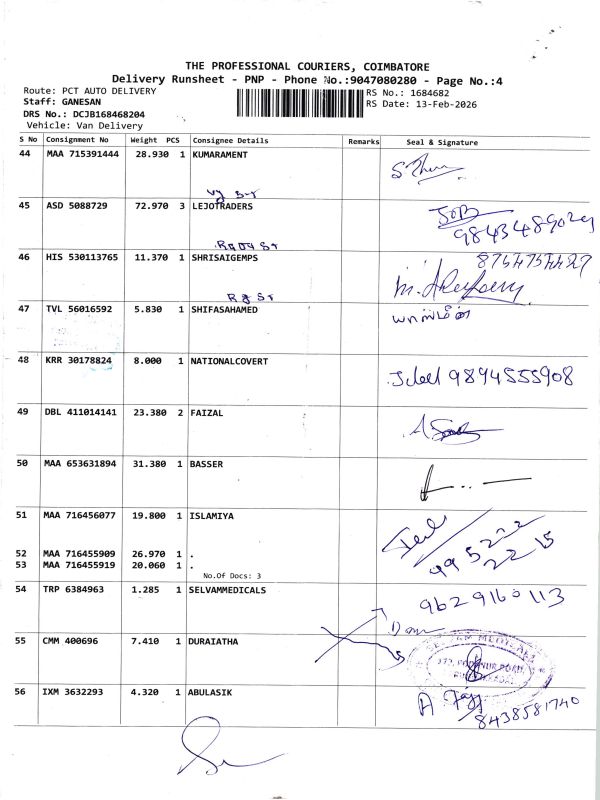 THE PROFESSIONAL COURIERS, COIMBATORE
Delivery Runsheet - PNP - Phone No.:9047080280 - Page No.:4
Route: PCT AUTO DELIVERY
RS No.: 1684682
Staff: GANESAN
RS Date: 13-Feb-2026
DRS No.: DCJB168468204
Vehicle: Van Delivery
S No Consignment No Weight PCS Consignee Details Remarks Seal & Signature
44 MAA 715391444 28.930 1 KUMARAMENT
45 ASD 5088729 72.970 3 LEJOTRADERS
9843489029
46 HIS 530113765 11.370 1 SHRISAIGEMPS
8754754427
47 TVL 56016592 5.830 1 SHIFASAHAMED
யாஸ்மீன்
48 KRR 30178824 8.000 1 NATIONALCOVERT
9894555908
49 DBL 411014141 23.380 2 FAIZAL
50 MAA 653631894 31.380 1 BASSER
51 MAA 716456077 19.800 1 ISLAMIYA
52 MAA 716455909 26.970 1 .
53 MAA 716455919 20.060 1 .
No.Of Docs: 3
54 TRP 6384963 1.285 1 SELVAMMEDICALS
9629160113
55 CMM 400696 7.410 1 DURAIATHA
56 IXM 3632293 4.320 1 ABULASIK
8438581740